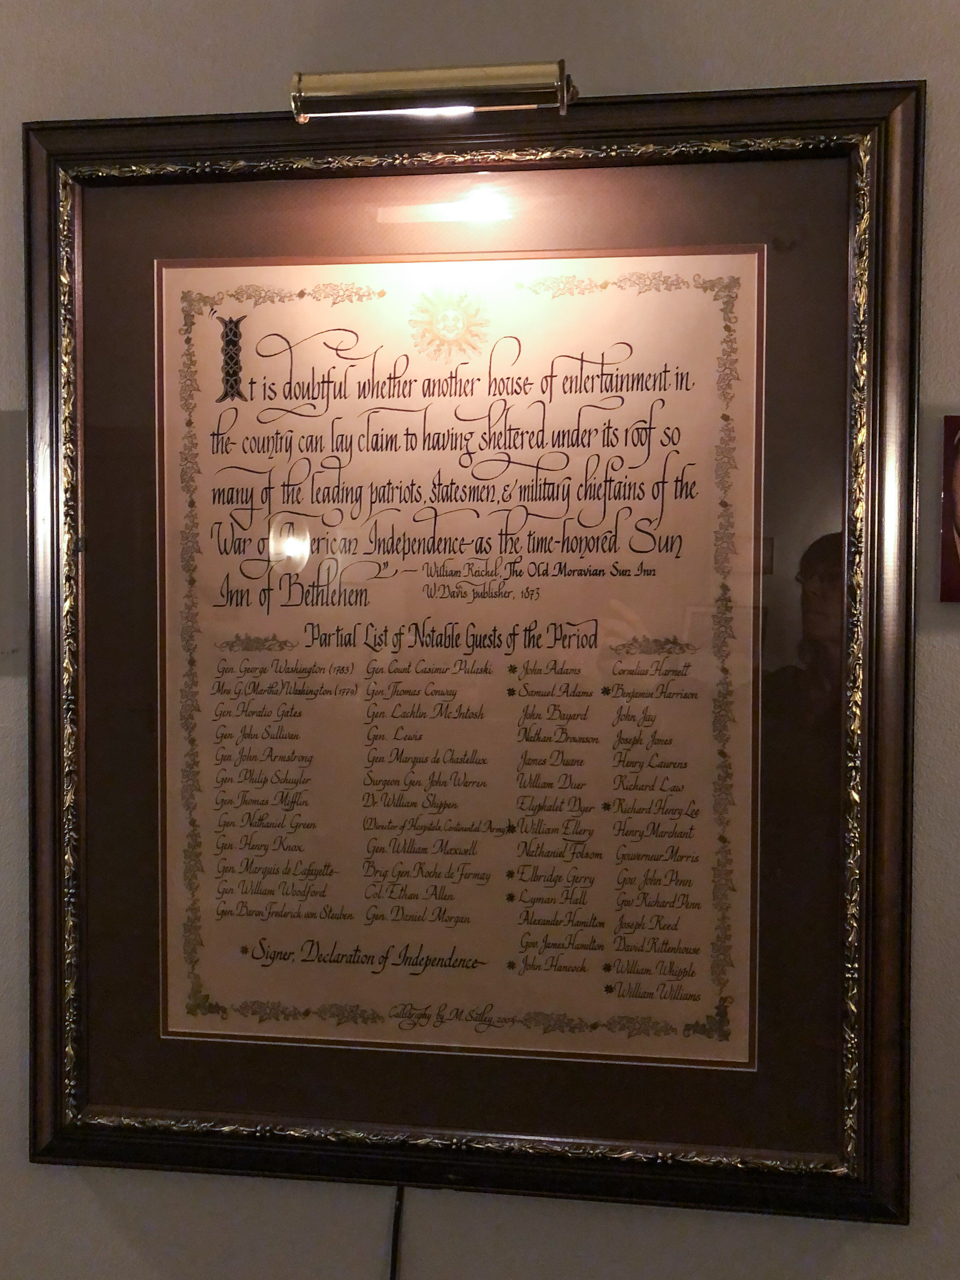 "It is doubtful whether another house of entertainment in
the country can lay claim to having sheltered under its roof so
many of the leading patriots, statesmen, & military chieftains of the
War of American Independence as the time-honored Sun
Inn of Bethlehem"
— William Reichel, The Old Moravian Sun Inn
W. Davis publisher, 1873
Partial List of Notable Guests of the Period
Gen. George Washington
Mrs G. (Martha) Washington (1779)
Gen. Horatio Gates
Gen. John Sullivan
Gen. John Armstrong
Gen. Philip Schuyler
Gen. Thomas Mifflin
Gen. Nathaniel Green
Gen. Henry Knox
Gen. Marquis de Lafayette
Gen. William Woodford
Gen. Baron Frederick von Steuben
Gen. Count Casimir Pulaski
Gen. Thomas Conway
Gen. Lachlin McIntosh
Gen. Lewis
Gen. Marquis de Chastellux
Surgeon Gen. John Warren
Dr. William Shippen
(Director of Hospitals, Continental Army)
Gen. William Maxwell
Brig. Gen Roche de Fermay
Col. Ethan Allen
Gen. Daniel Morgan
* John Adams
* Samuel Adams
John Bayard
Nathan Brownson
James Duane
William Duer
Eliphalet Dyer
* William Ellery
Nathaniel Folsom
* Elbridge Gerry
* Lyman Hall
Alexander Hamilton
Gov. James Hamilton
* John Hancock
Cornelius Harnett
* Benjamin Harrison
John Jay
Joseph Jones
Henry Laurens
Richard Law
* Richard Henry Lee
Henry Marchant
Gouverneur Morris
Gov. John Penn
Gov. Richard Penn
Joseph Reed
David Rittenhouse
* William Whipple
* William Williams
* Signer, Declaration of Independence
Calligraphy by M.